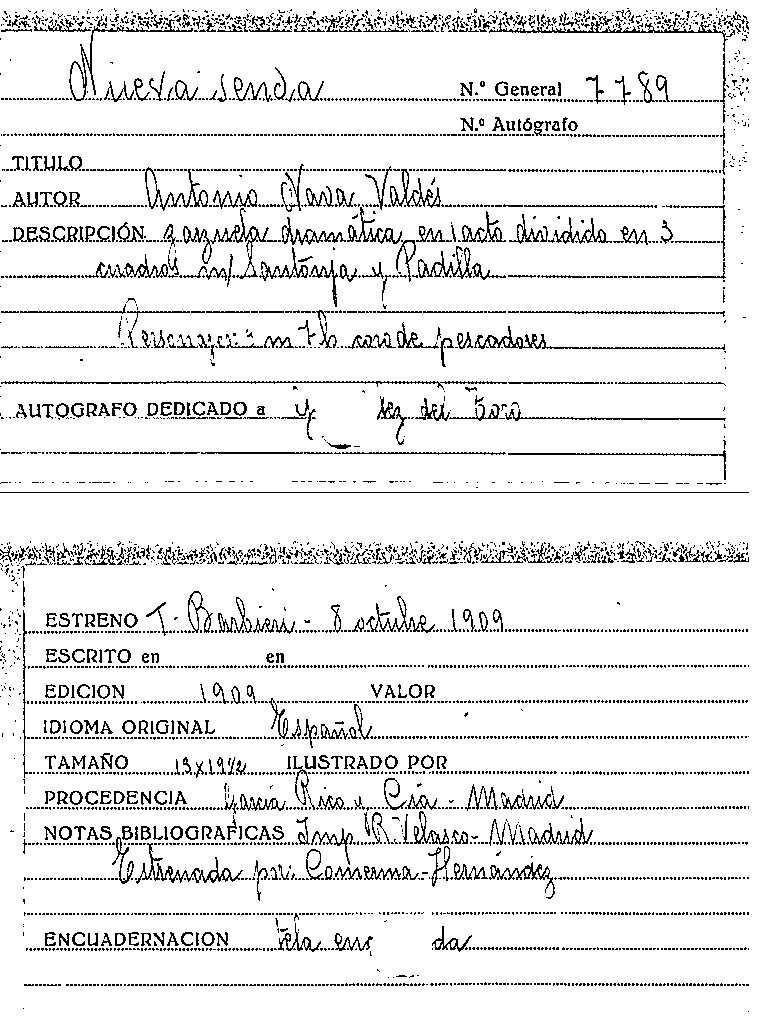 Nueva senda N.º General 7789
N.º Autógrafo
TITULO
AUTOR Antonio Nava Valdés
DESCRIPCIÓN zarzuela dramática en 1 acto dividido en 3
cuadros m/ Santonja y Padilla
Personajes: 3 m 7 h coro de pescadores
AUTOGRAFO DEDICADO a del Toro
ESTRENO T. Barbieri - 8 octubre 1909
ESCRITO en en
EDICION 1909 VALOR
IDIOMA ORIGINAL Español
TAMAÑO 13x19½ ILUSTRADO POR
PROCEDENCIA García Rico y Cía - Madrid
NOTAS BIBLIOGRAFICAS Imp R. Velasco - Madrid
Estrenada por: Comerma-Hernández
ENCUADERNACION tela